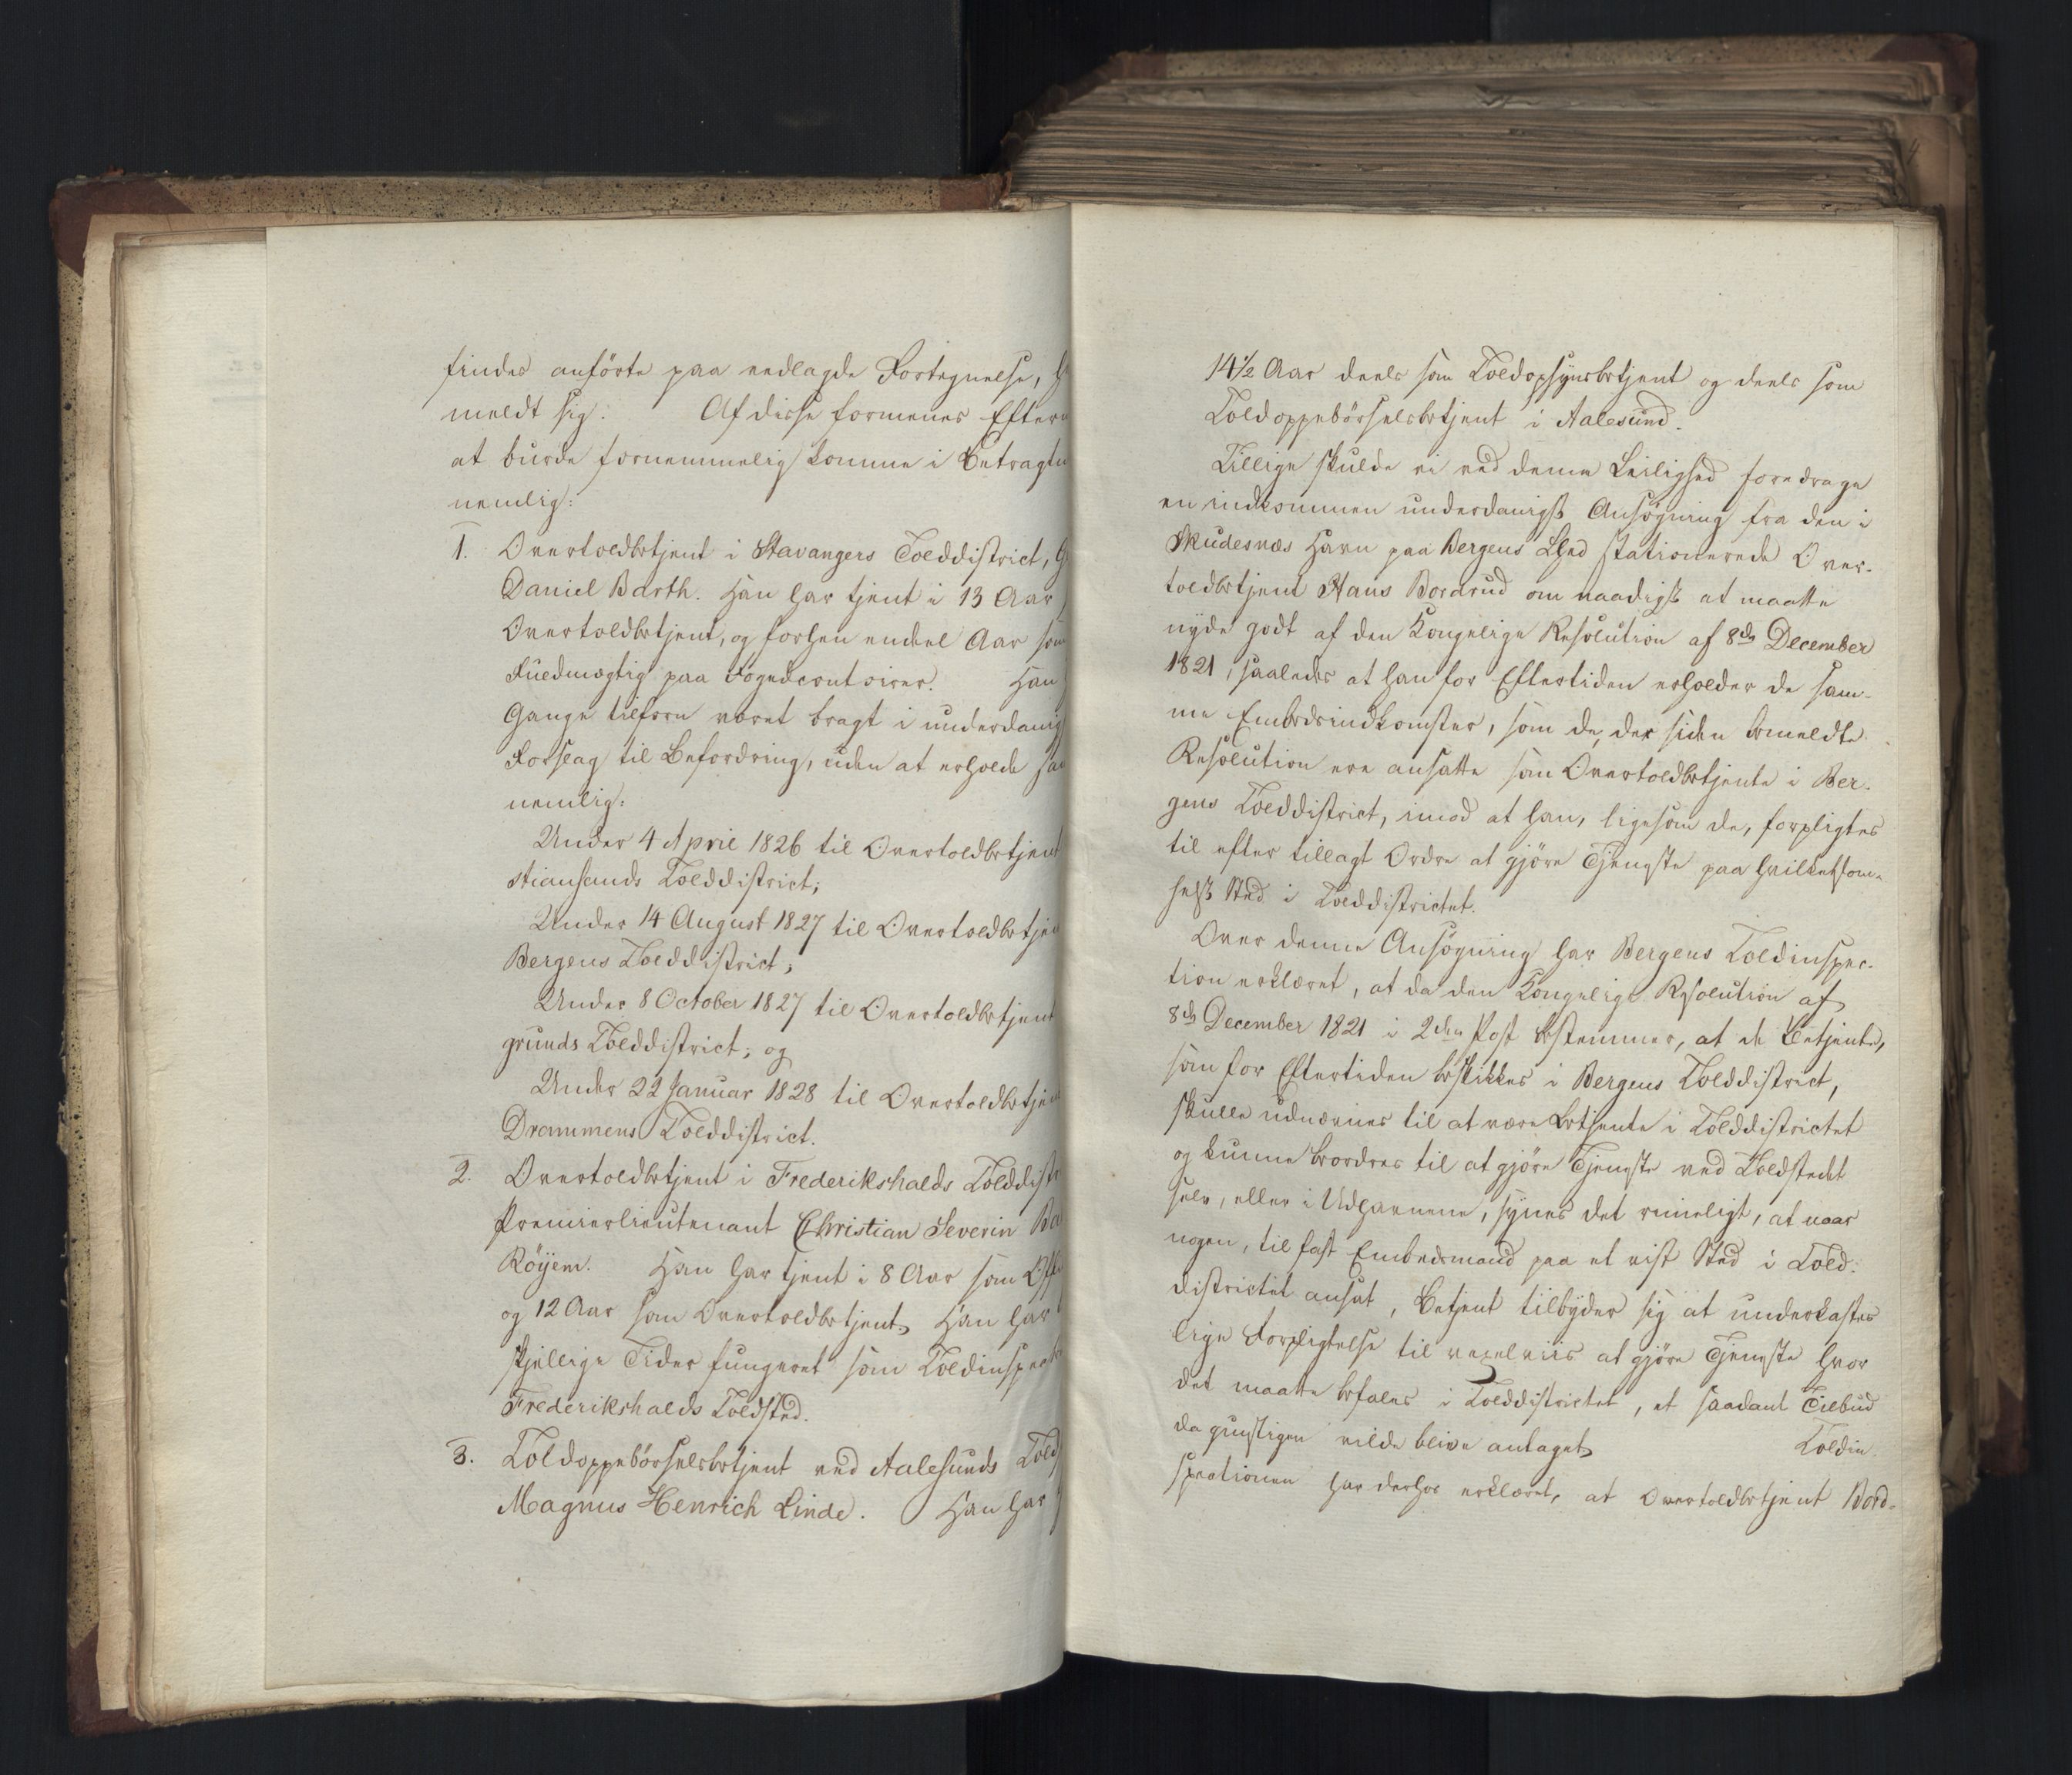 findes anförte paa vedlagde Fortegnelse,
meldt sig. Af disse formenes Efter
at burde fornemmelig komme i Betragtn
nemlig:
1. Overtoldbetjent i Stavangers Tolddistrict,
Daniel Barth. Han har tjent i 13 Aar
Overtoldbetjent, og forhen endeel Aar som
Fuldmægtig paa Fogedcontoirer. Han
Gange tilforn været bragt i underdanig
Forslag til Befordring, uden at erholde saa
nemlig:
Under 4 April 1826 til Overtoldbetjent
stiansands Tolddistrict;
Under 14 August 1827 til Overtoldbetjen
Bergens Tolddistrict;
Under 8 October 1827 til Overtoldbetjent
grunds Tolddistrict; og
Under 22 Januar 1828 til Overtoldbetjen
Drammens Tolddistrict.
2. Overtoldbetjent i Frederikshalds Tolddistr
Premierlieutenant Christian Severin Ba
Röyem. Han har tjent i 8 Aar som Offi
og 12 Aar som Overtoldbetjent. Han har
skjellige Tider fungeret som Toldinspect
Frederikshalds Toldsted.
3. Toldoppebörselsbetjent ved Aalesunds Told
Magnus Henrich Linde. Han har
14½ Aar deels som Toldopsynsbetjent og deels som
Toldoppebörselsbetjent i Aalesund.
Tillige skulde vi ved denne Leilighed foredrage
en indkommen underdanigst Ansögning fra den i
Skudesnæs Havn paa Bergens Lhed stationerede Over-
toldbetjent Hans Bordrud om naadigst at maatte
nyde godt af den Kongelige Resolution af 8de December
1821, saaledes at han for Eftertiden erholder de sam-
me Embedsindkomster, som de, der siden bemeldte
Resolution ere ansatte som Overtoldbetjente i Ber-
gens Tolddistrict, imod at han, ligesom de, forpligtes
til efter tillagt Ordre at gjöre Tjeneste paa hvilketsom-
helst Sted i Tolddistrictet.
Over denne Ansögning har Bergens Toldinspec-
tion erklæret, at da den Kongelige Resolution af
8de December 1821 i 2den Post bestemmer, at de Betjente,
som for Eftertiden beskikkes i Bergens Tolddistrict,
skulle udnævnes til at være Betjente i Tolddistrictet
og kunne beordres til at gjöre Tjeneste ved Toldstedet
selv, eller i Udhavnene, synes det rimeligt, at naar
nogen, til fast Embedsmand paa et vist Sted i Told-
districtet ansat, Betjent tilbyder sig at underkastes
lige Forpligtelse til vexelviis at gjöre Tjeneste hvor
det maatte befales i Tolddistrictet, et saadant Tilbud
da gunstigen vilde blive antaget. Toldin-
spectionen har derhos erklæret, at Overtoldbetjent Bord-